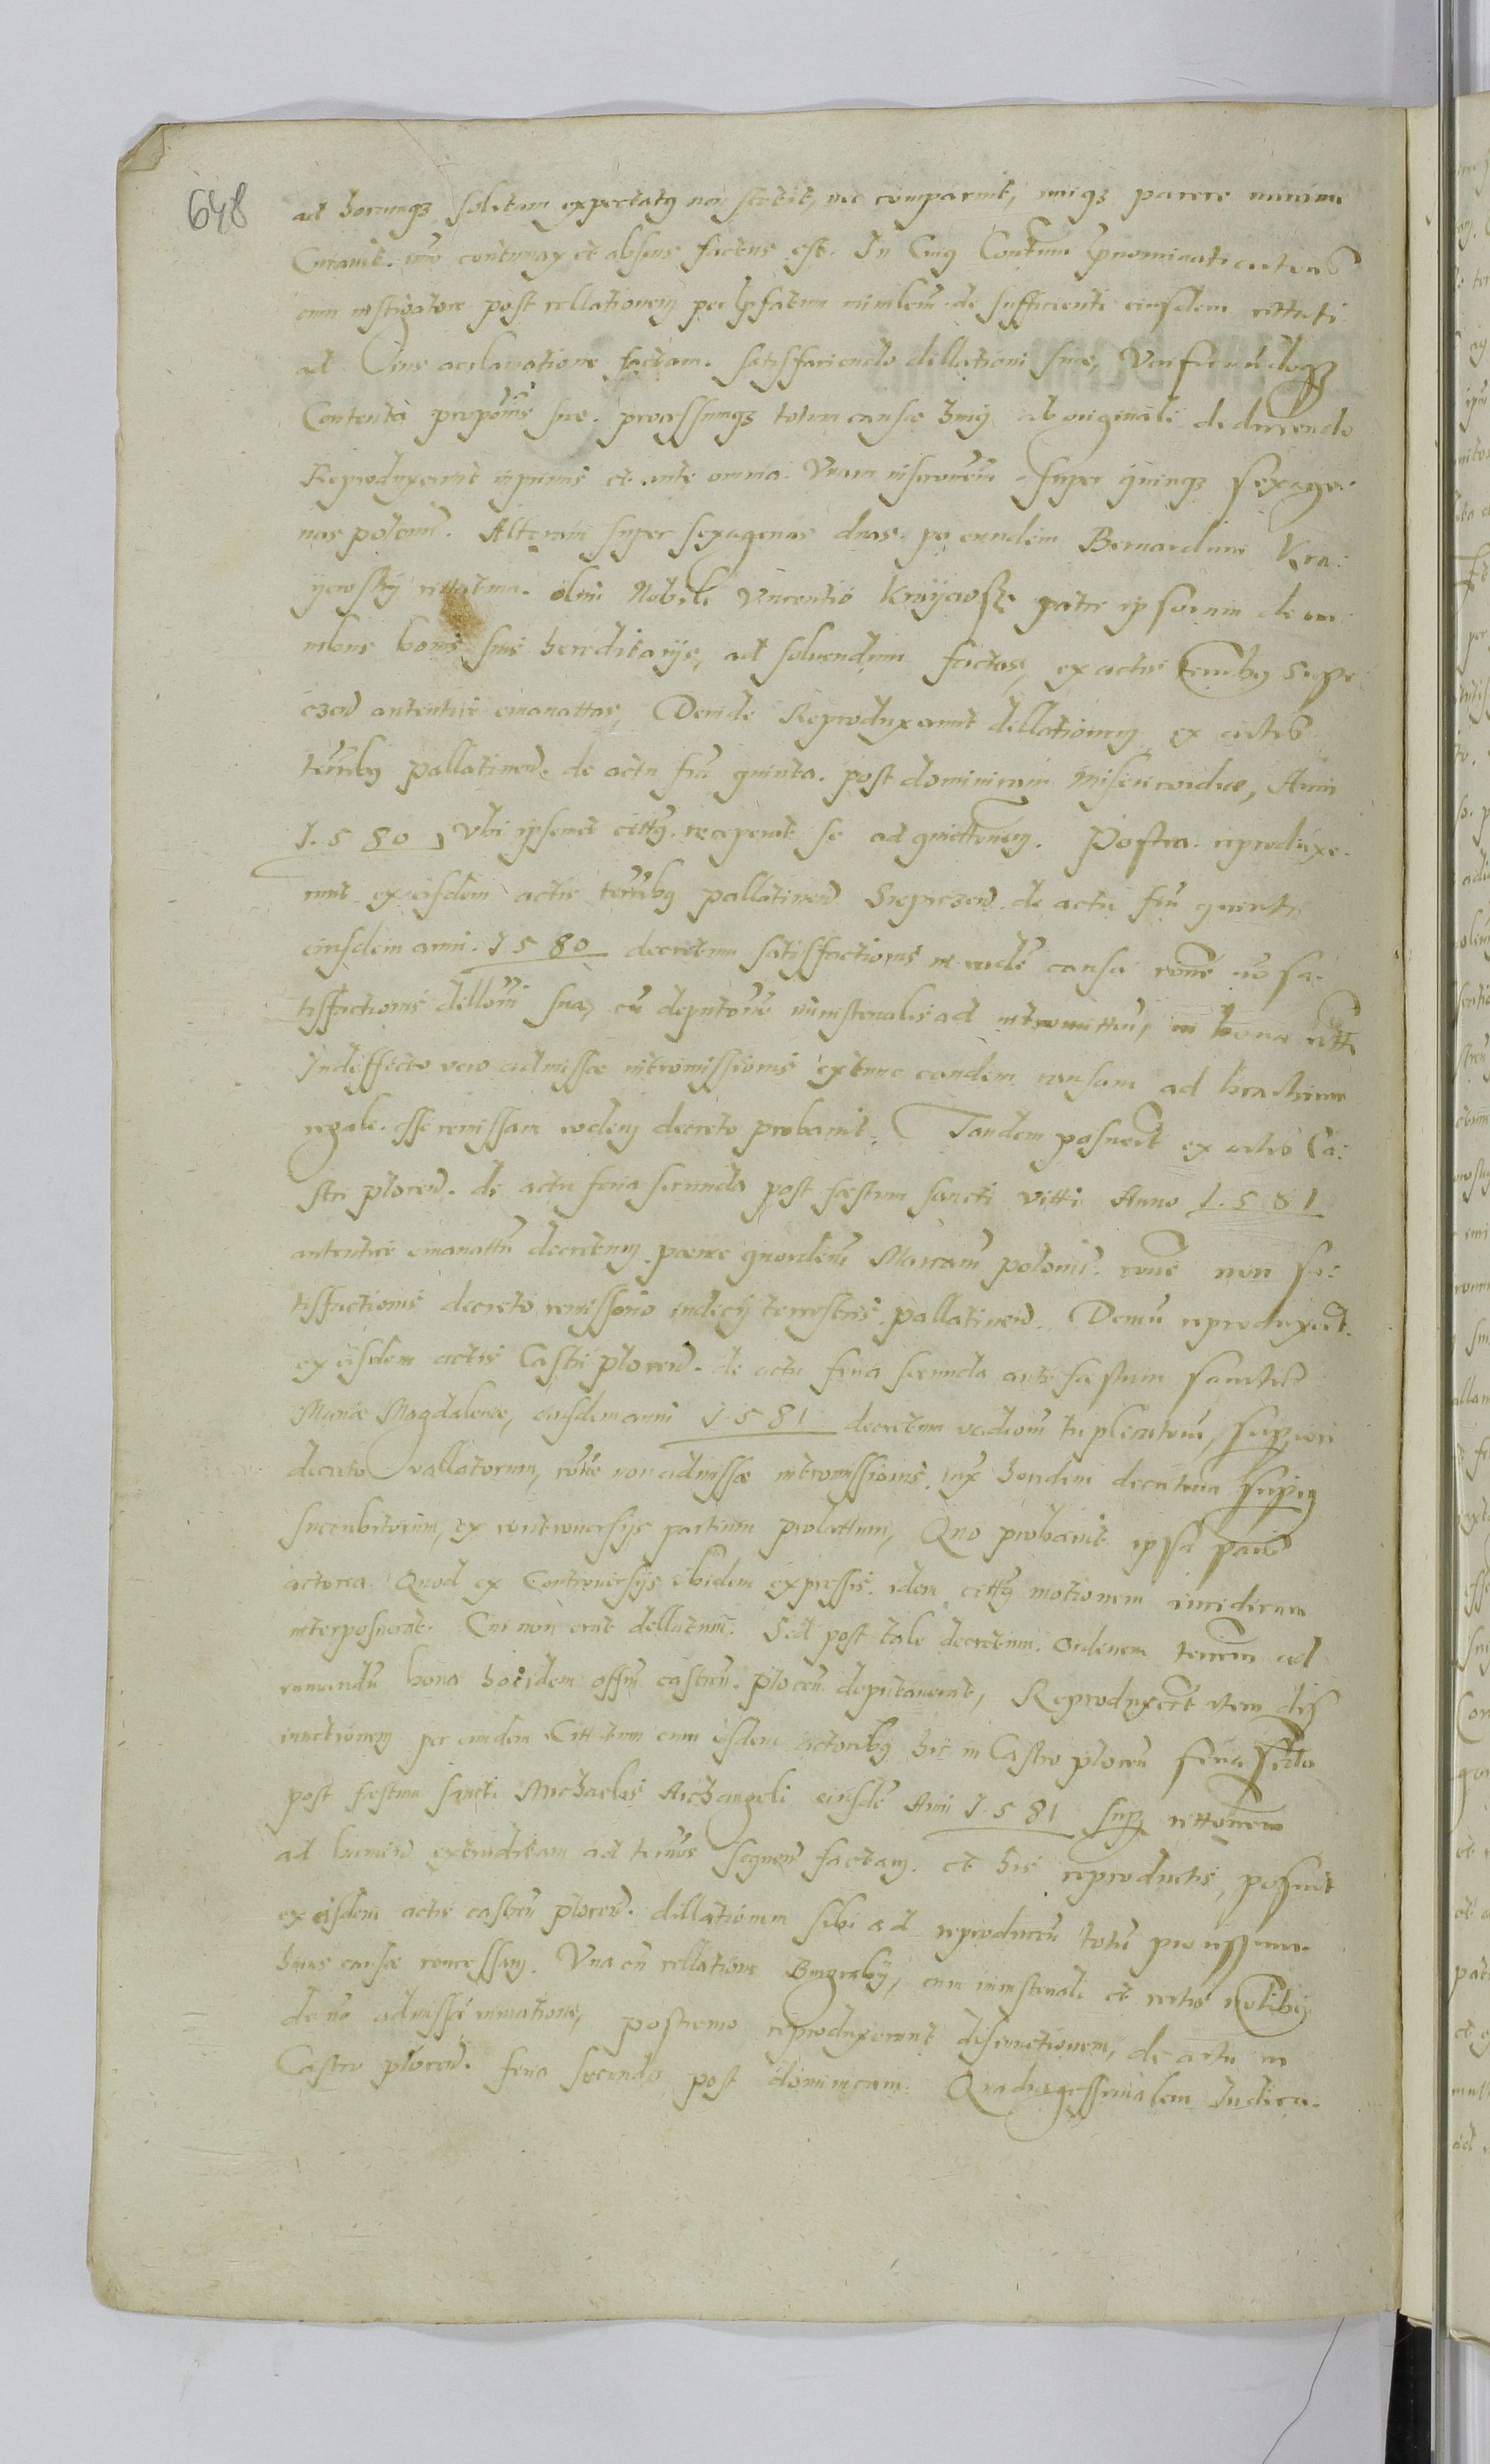 648
ad horumqꝫ solitam expectatꝯ non stetit, nec comparuit, iuriqꝫ parere minime
Curavit. imo contumax et absens factus est. In Cuiꝯ Contum pnominati actores
cum instigatore post rellationem per psatum minlem de sufficienti eiusdem cittati
ad Ius acclamatione factam. satisfaciendo dillationi sue, Verificandoqꝫ
Contenta propois sue. processumqꝫ totum causæ huiꝯ ab originali deducendo
Reproduxerunt inprimis et ante omnia. Vnam inscronem super quinqꝫ sexage-
nas polonm. Alteram super sexagenas duas, per eundem Bernardum Kra:
ijewsky cittatum. olim Nobili Vincentio Kraijewsky patri ipsorum de om
nibus bonis suis hereditarijs, ad soluendum factas, ex actis terrbꝯ Siepr
czen autentice emanattas, Deinde Reproduxerunt dillationem ex actis
terrbꝯ pallatinen. de actu fria quinta. post dominicam Misericordiæ, Anni
1580, Vbi ipsemet cittꝯ. receperat se ad quiettonem. Postea. reproduxe-
runt ex eisdem actis terrbꝯ pallatinen Sieprczen. de actu fria quinta
eiusdem anni. 1580 decretum satisfactionis in eadem causa rone no sa-
tisfactionis dillom suæ, cu deputone ministerialis ad intromitten, in bona citti
Indeffectu vero admissæ intromissionis extunc eandem causam ad brachium
regale. esse remissam eodem decreto probavit. Tandem posuert ex actis Ca:
stri plocen. de actu feria secunda post festum sancti Vitti Anno 1581
autentice emanattu decretum. pænæ quordem Marcam polonm. rone non sa:
tisfactionis decreto remissorio iudicij terrestris. pallatinen. Demu reproduxert.
ex eisdem actis Castri plocen. de actu feria secunda ante festum sanctæ
Mariæ Magdalenæ, eiusdem anni 1581 decretum vadiom triplicatom, superiori
decreto vallatorum, rone non admissæ intromissionis. iux hordem decretum superꝯ
succubitorum, ex controuersijs partium prolattum, Quo probavit ipsa pars
actorea. Quod ex Controuersijs ibidem expressis. idem cittꝯ motionem iuridicam
interposuerat. Cui non erat dellatum. Sed post tale decretum. ordinem terrem ad
rumandu bona hoc idem offm castren. plocen deputaverat, Reproduxert item dis
iunctionem per eundem Cittatum cum eisdem actoribꝯ hic in Castro plocen feria secda
post festum sancti Michaelis Archangeli eiusde Anni 1581 super cittonem
ad lumen extraditam ad termos sequen factam. et his reproductis, posuit
ex eisdem actis castren plocen. dillationem sibi ad reproducen totu processum.
huius causæ concessam. Vna cu rellatione Burgrabij, cum ministeriali et certis nobilibꝯ
de no admissa rumatione, postremo reproduxerunt disiunctionem, de actu in
Castro plocen. feria secunda post dominicam. Quadragessimalem Iudica.